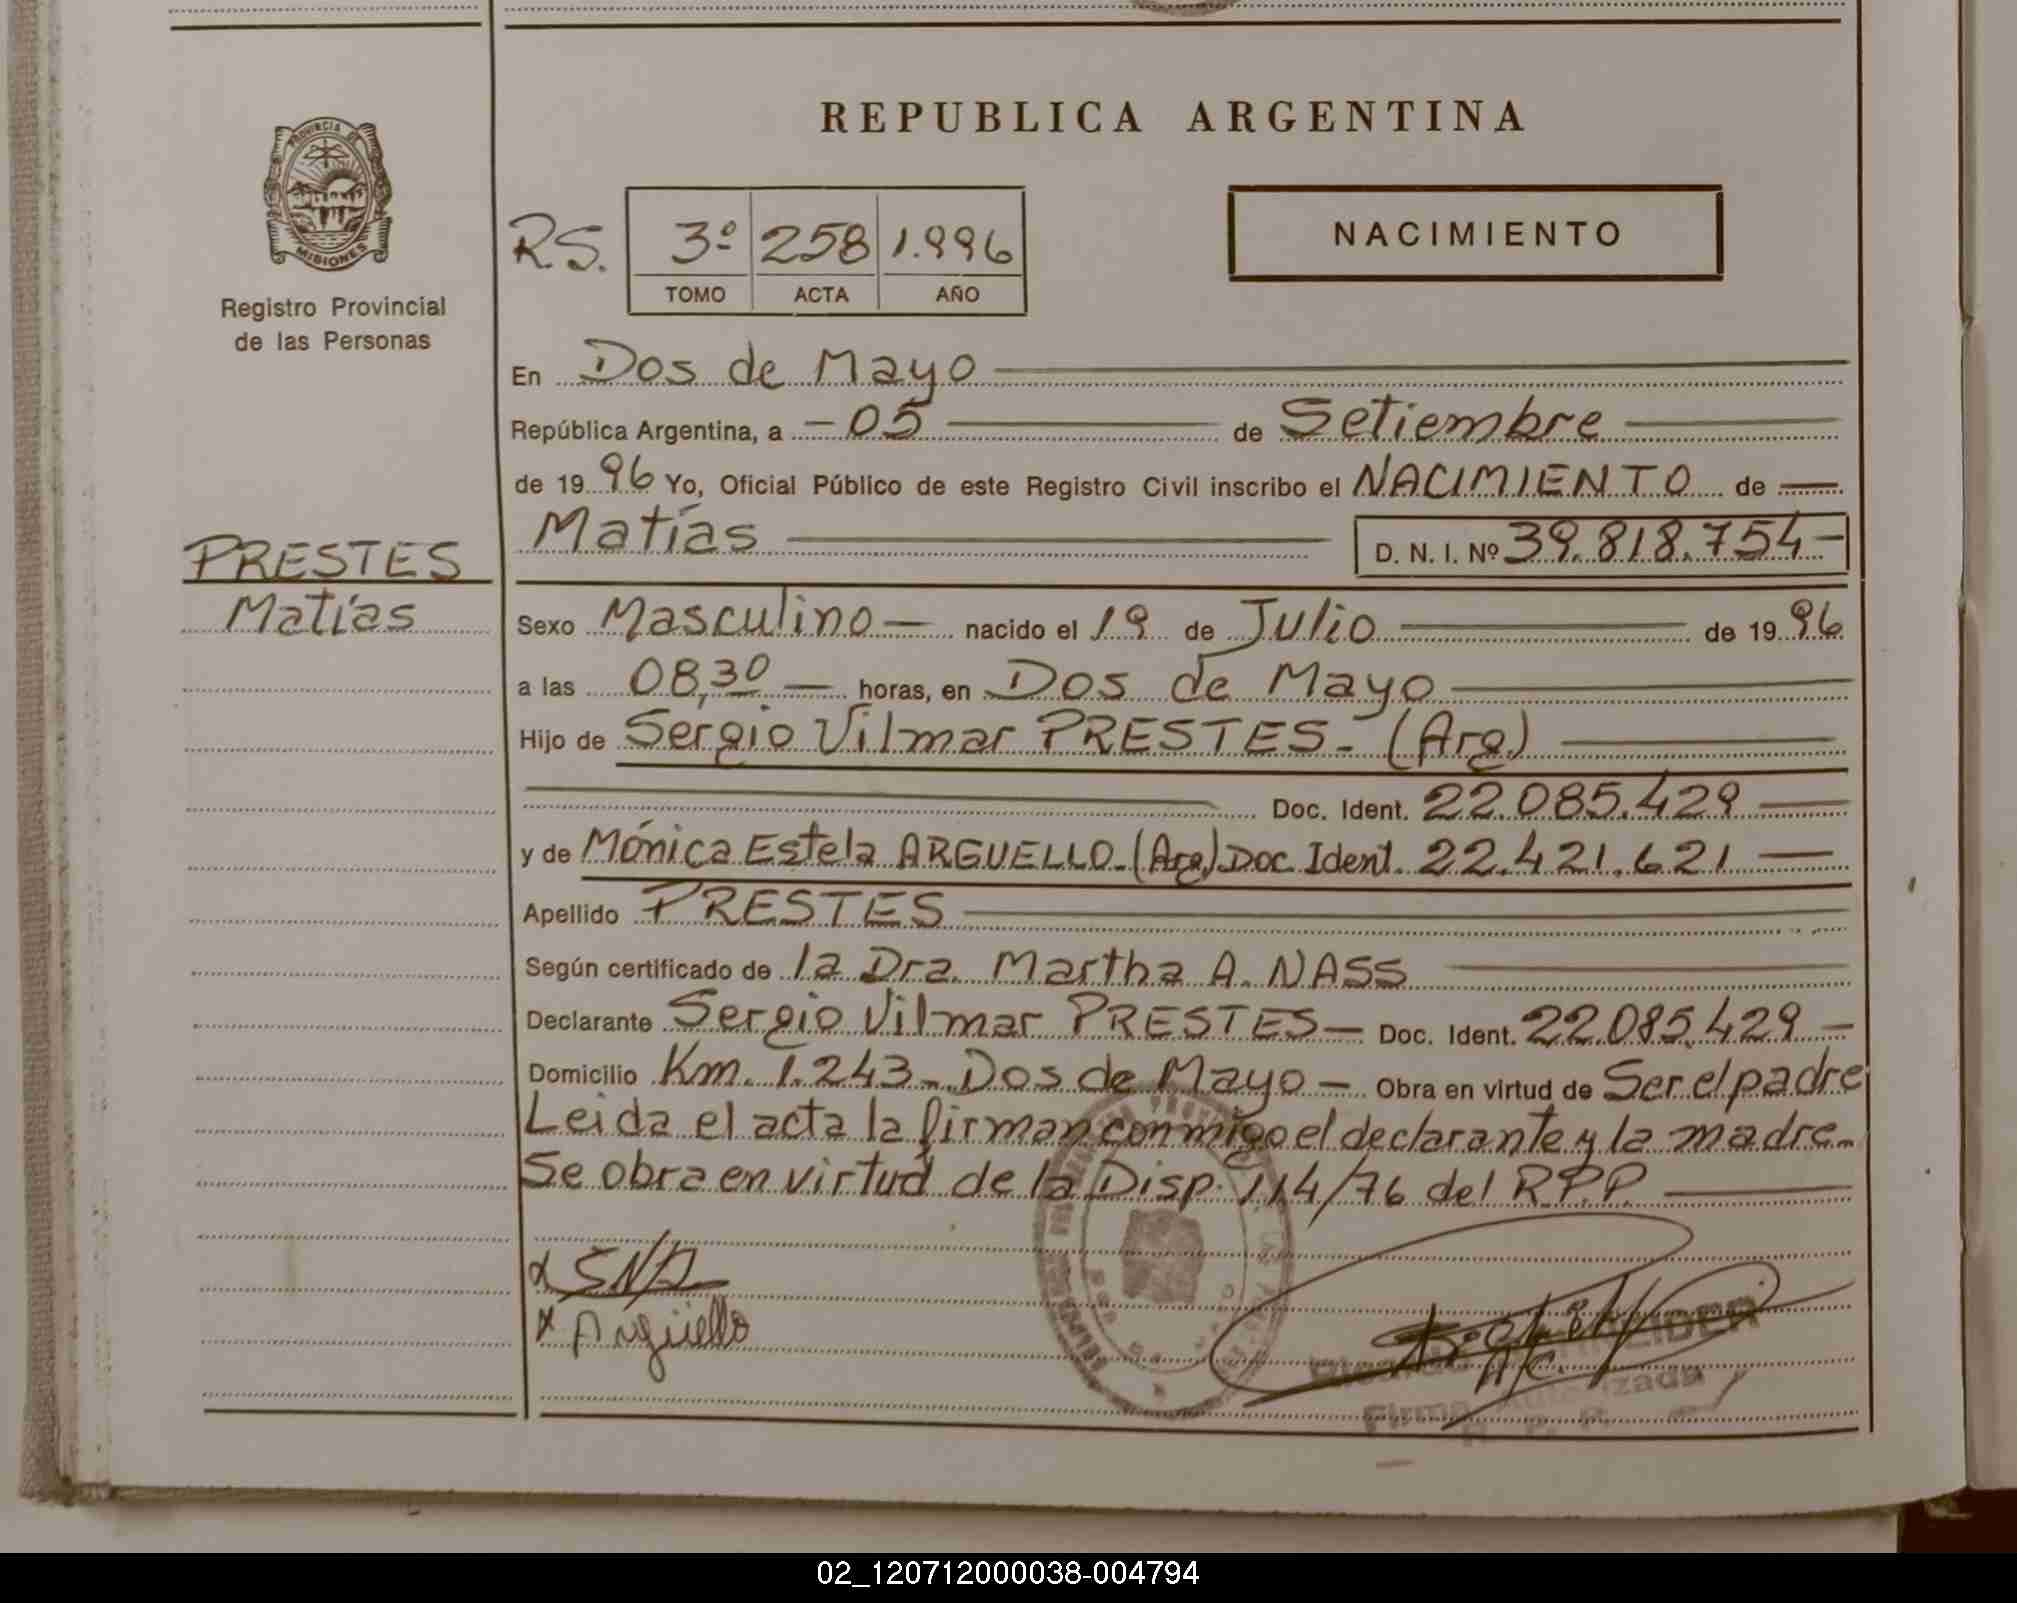 REPUBLICA ARGENTINA
PROVINCIA DE
MISIONES
Registro Provincial
de las Personas
RS. 3º 258 1.996
TOMO ACTA AÑO
NACIMIENTO
En Dos de Mayo
República Argentina, a - 05 de Setiembre
de 1996 Yo, Oficial Público de este Registro Civil inscribo el NACIMIENTO de
Matías D. N. I. Nº 39.818.754-
PRESTES
Matías
Sexo Masculino nacido el 19 de Julio de 1996
a las 08,30 horas, en Dos de Mayo
Hijo de Sergio Vilmar PRESTES - (Arg)
Doc. Ident. 22.085.429
y de Mónica Estela ARGUELLO - (Arg.) Doc Ident. 22.421.621
Apellido PRESTES
Según certificado de la Dra. Martha A. NASS
Declarante Sergio Vilmar PRESTES - Doc. Ident. 22.085.429 -
Domicilio Km. 1.243 - Dos de Mayo - Obra en virtud de Ser el padre
Leida el acta la firman conmigo el declarante y la madre.
Se obra en virtud de la Disp. 114/76 del R.P.P.
x
x Argüello
Firma Autorizada
R. P. P.
02_120712000038-004794